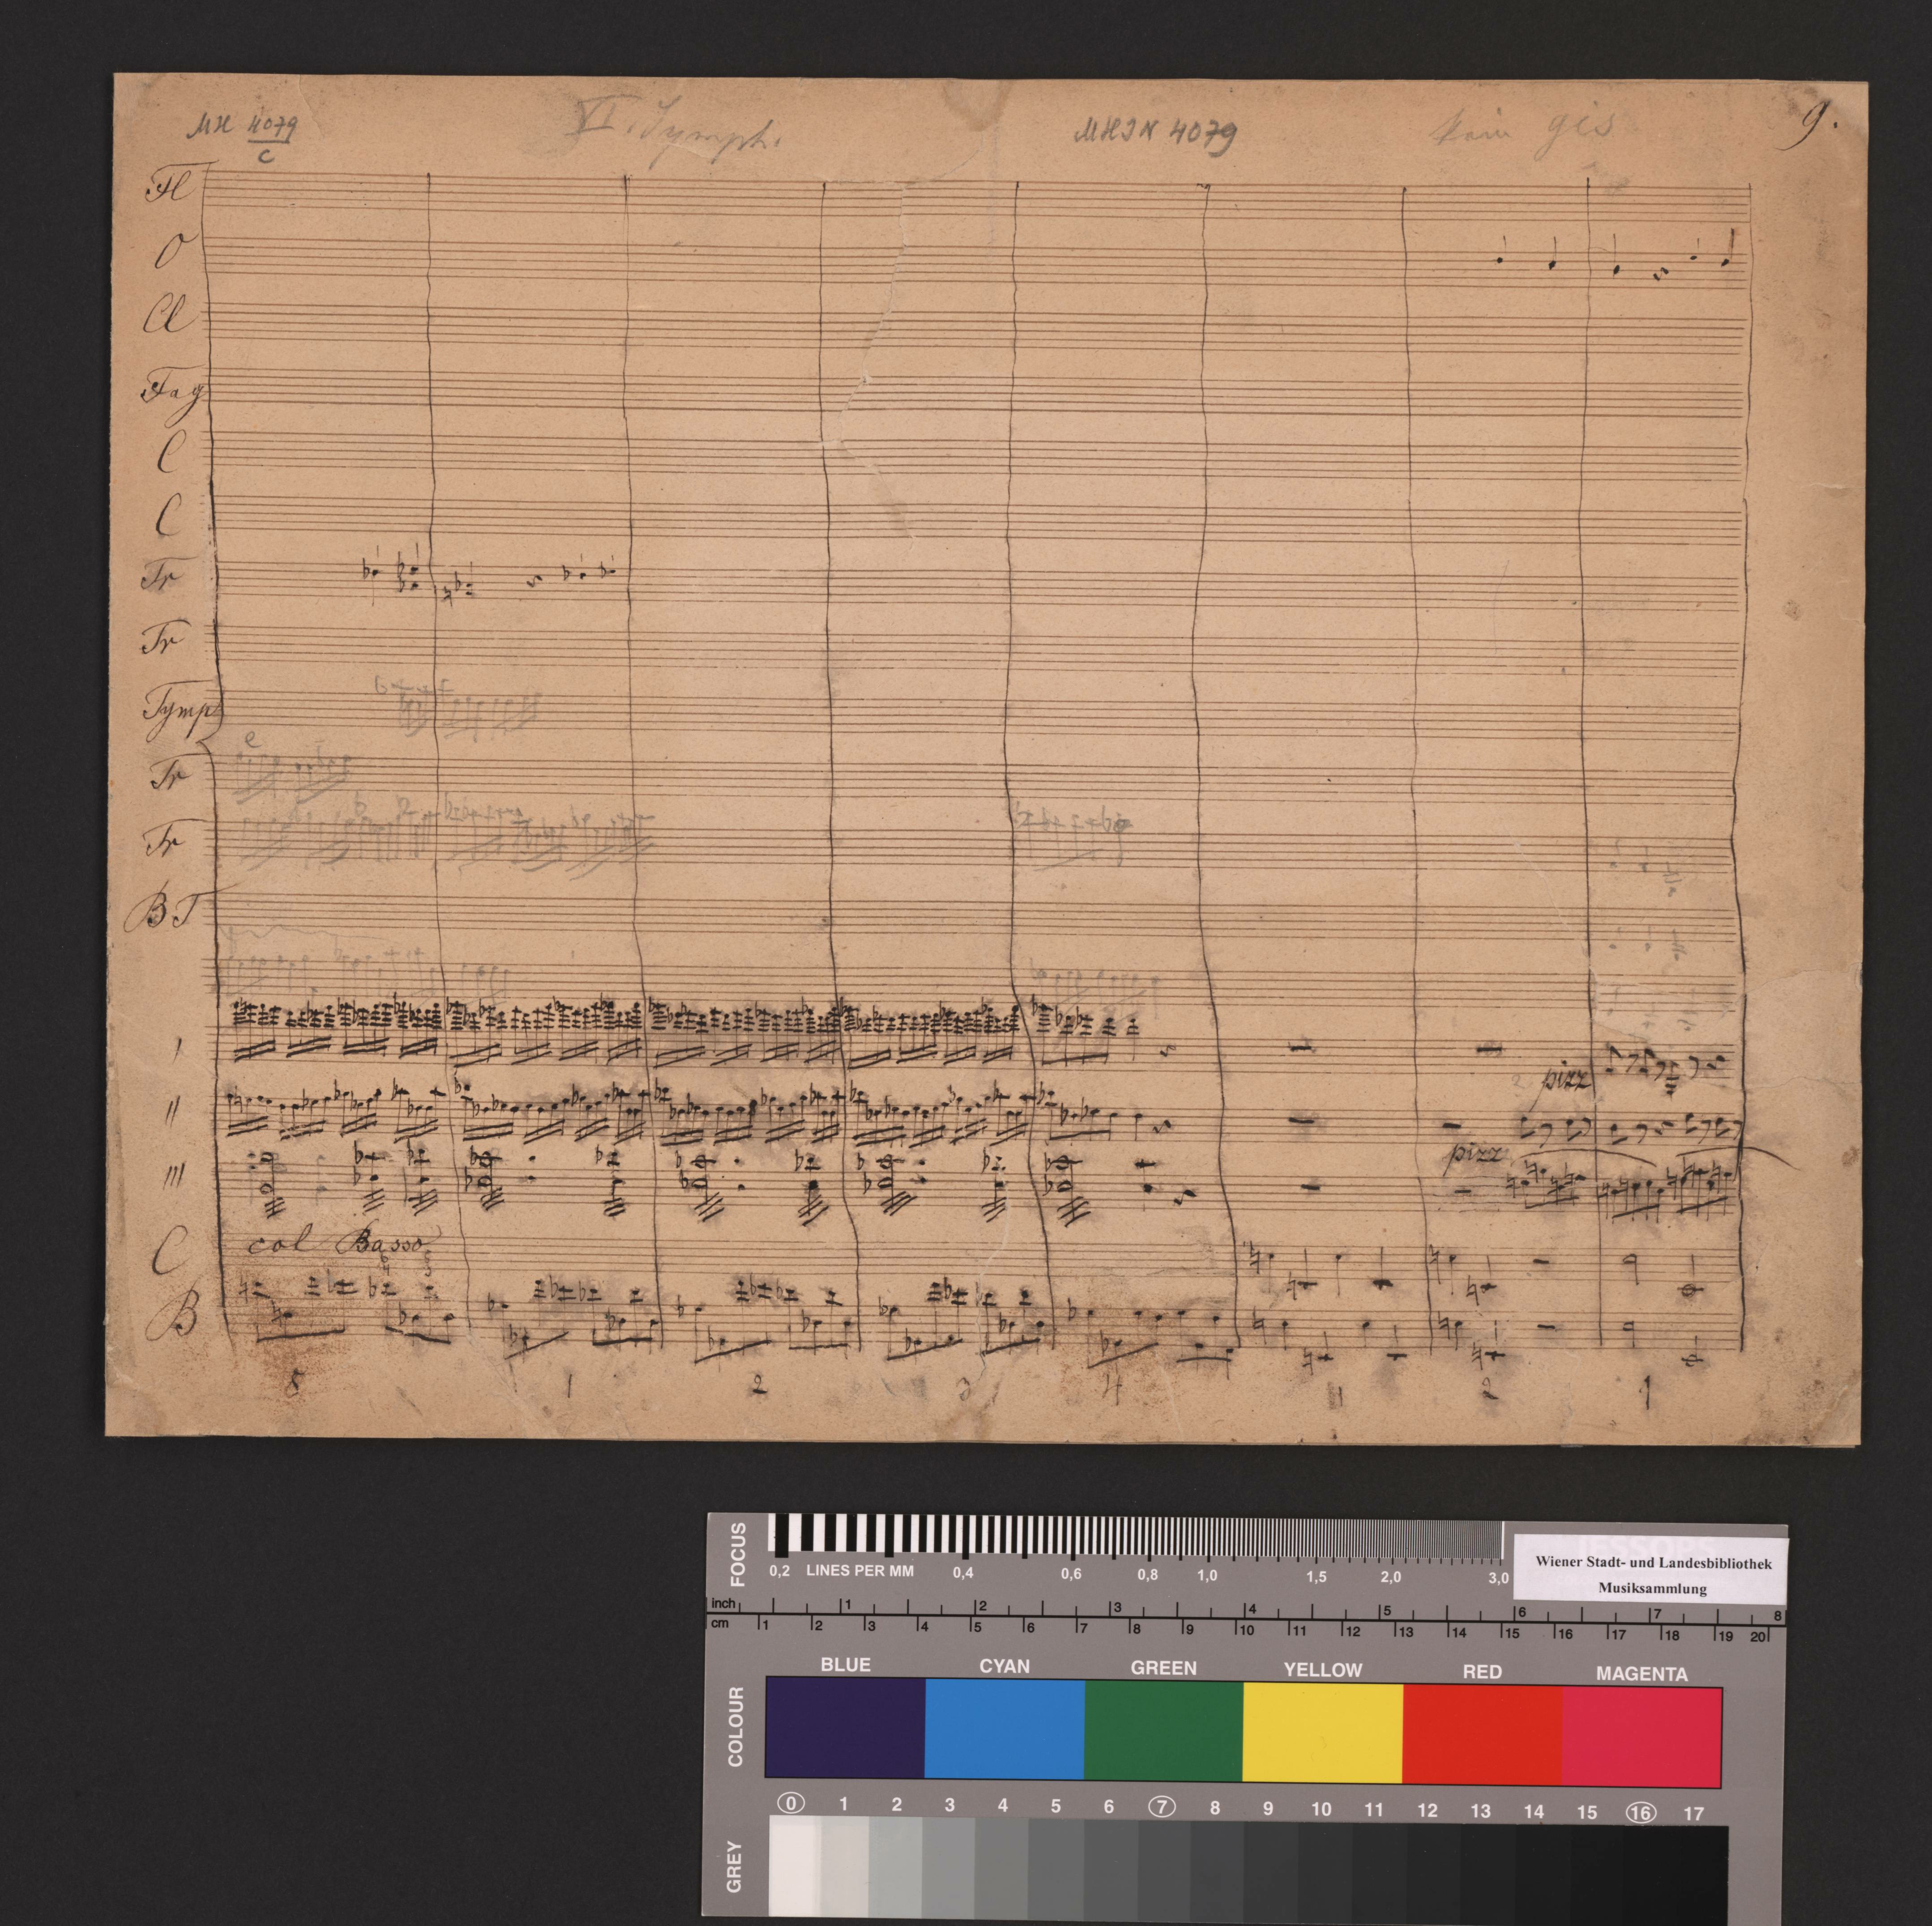 MH 4079/c VI. Symph. MHIN 4079 kein gis 9.
Fl
O
Cl
Fag
C
C
Tr
Tr
Tymp
e
Tr
Tr
BT
I
pizz
II
pizz
III
C col Basso
B
5 1 2 3 4 1 2 1
FOCUS
0,2 LINES PER MM 0,4 0,6 0,8 1,0 1,5 2,0 3,0
Wiener Stadt- und Landesbibliothek
Musiksammlung
inch 1 2 3 4 5 6 7 8
cm 1 2 3 4 5 6 7 8 9 10 11 12 13 14 15 16 17 18 19 20
COLOUR
BLUE CYAN GREEN YELLOW RED MAGENTA
0 1 2 3 4 5 6 7 8 9 10 11 12 13 14 15 16 17
GREY